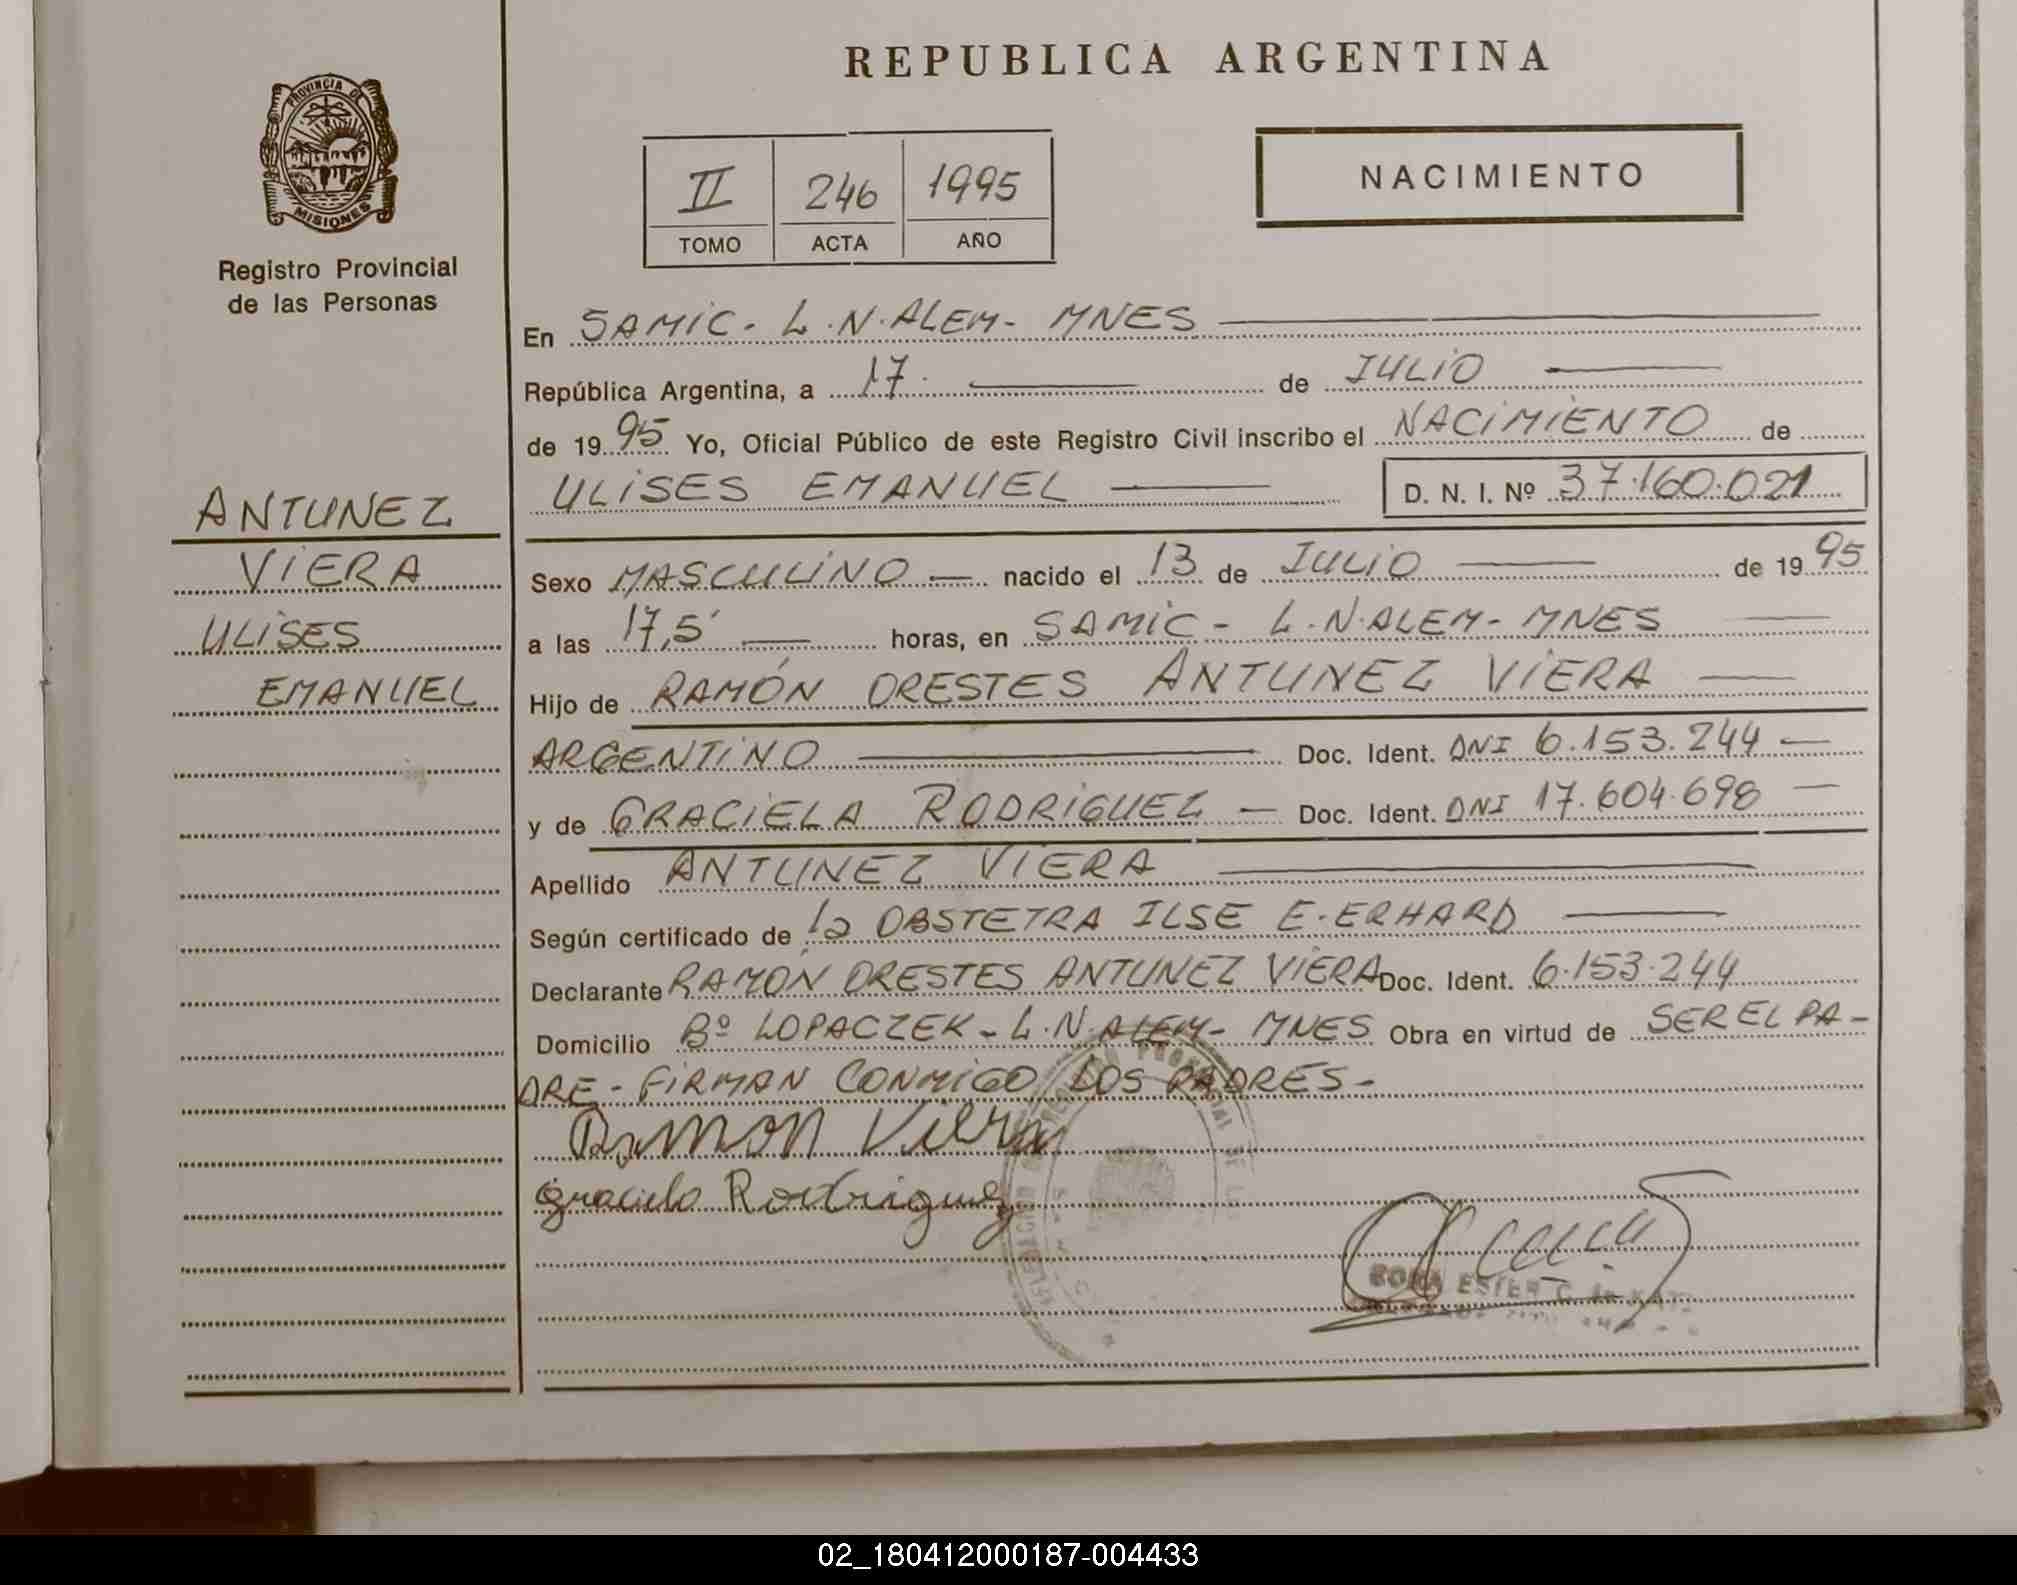 REPUBLICA ARGENTINA
PROVINCIA DE
MISIONES
Registro Provincial
de las Personas
II 246 1995
TOMO ACTA AÑO
NACIMIENTO
ANTUNEZ
VIERA
ULISES
EMANUEL
En SAMIC - L.N.ALEM - MNES
República Argentina, a 17 de JULIO
de 1995 Yo, Oficial Público de este Registro Civil inscribo el NACIMIENTO de
ULISES EMANUEL D. N. I. Nº 37.160.021
Sexo MASCULINO — nacido el 13 de JULIO de 1995
a las 17,5' horas, en SAMIC - L.N.ALEM - MNES
Hijo de RAMÓN ORESTES ANTUNEZ VIERA
ARGENTINO Doc. Ident. DNI 6.153.244 —
y de GRACIELA RODRIGUEZ — Doc. Ident. DNI 17.604.698 —
Apellido ANTUNEZ VIERA
Según certificado de la OBSTETRA ILSE E. ERHARD
Declarante RAMÓN ORESTES ANTUNEZ VIERA Doc. Ident. 6.153.244
Domicilio Bº LOPACZEK - L.N.ALEM - MNES Obra en virtud de SER EL PA-
DRE - FIRMAN CONMIGO LOS PADRES -
Ramon Viera
Graciela Rodriguez
ESTER C. de
02_180412000187-004433